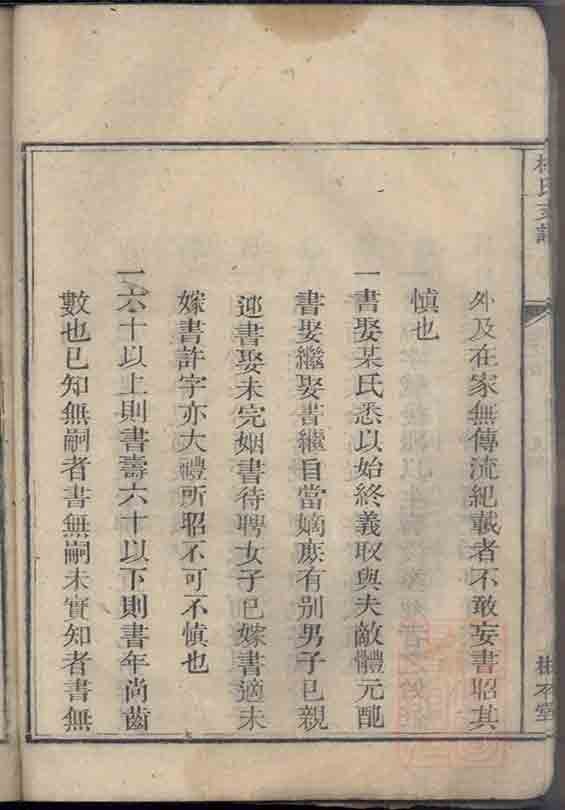 外及在家無傳流紀載者不敢妄書昭其
慎也
一書娶某氏悉以始終義取與夫敵體元配
書娶繼娶書繼目當嫡庶有别男子已親
迎書娶未完姻書待聘女子已嫁書適未
嫁書許字亦大禮所昭不可不慎也
一六十以上則書壽六十以下則書年尚齒
數也已知無嗣者書無嗣未實知者書無